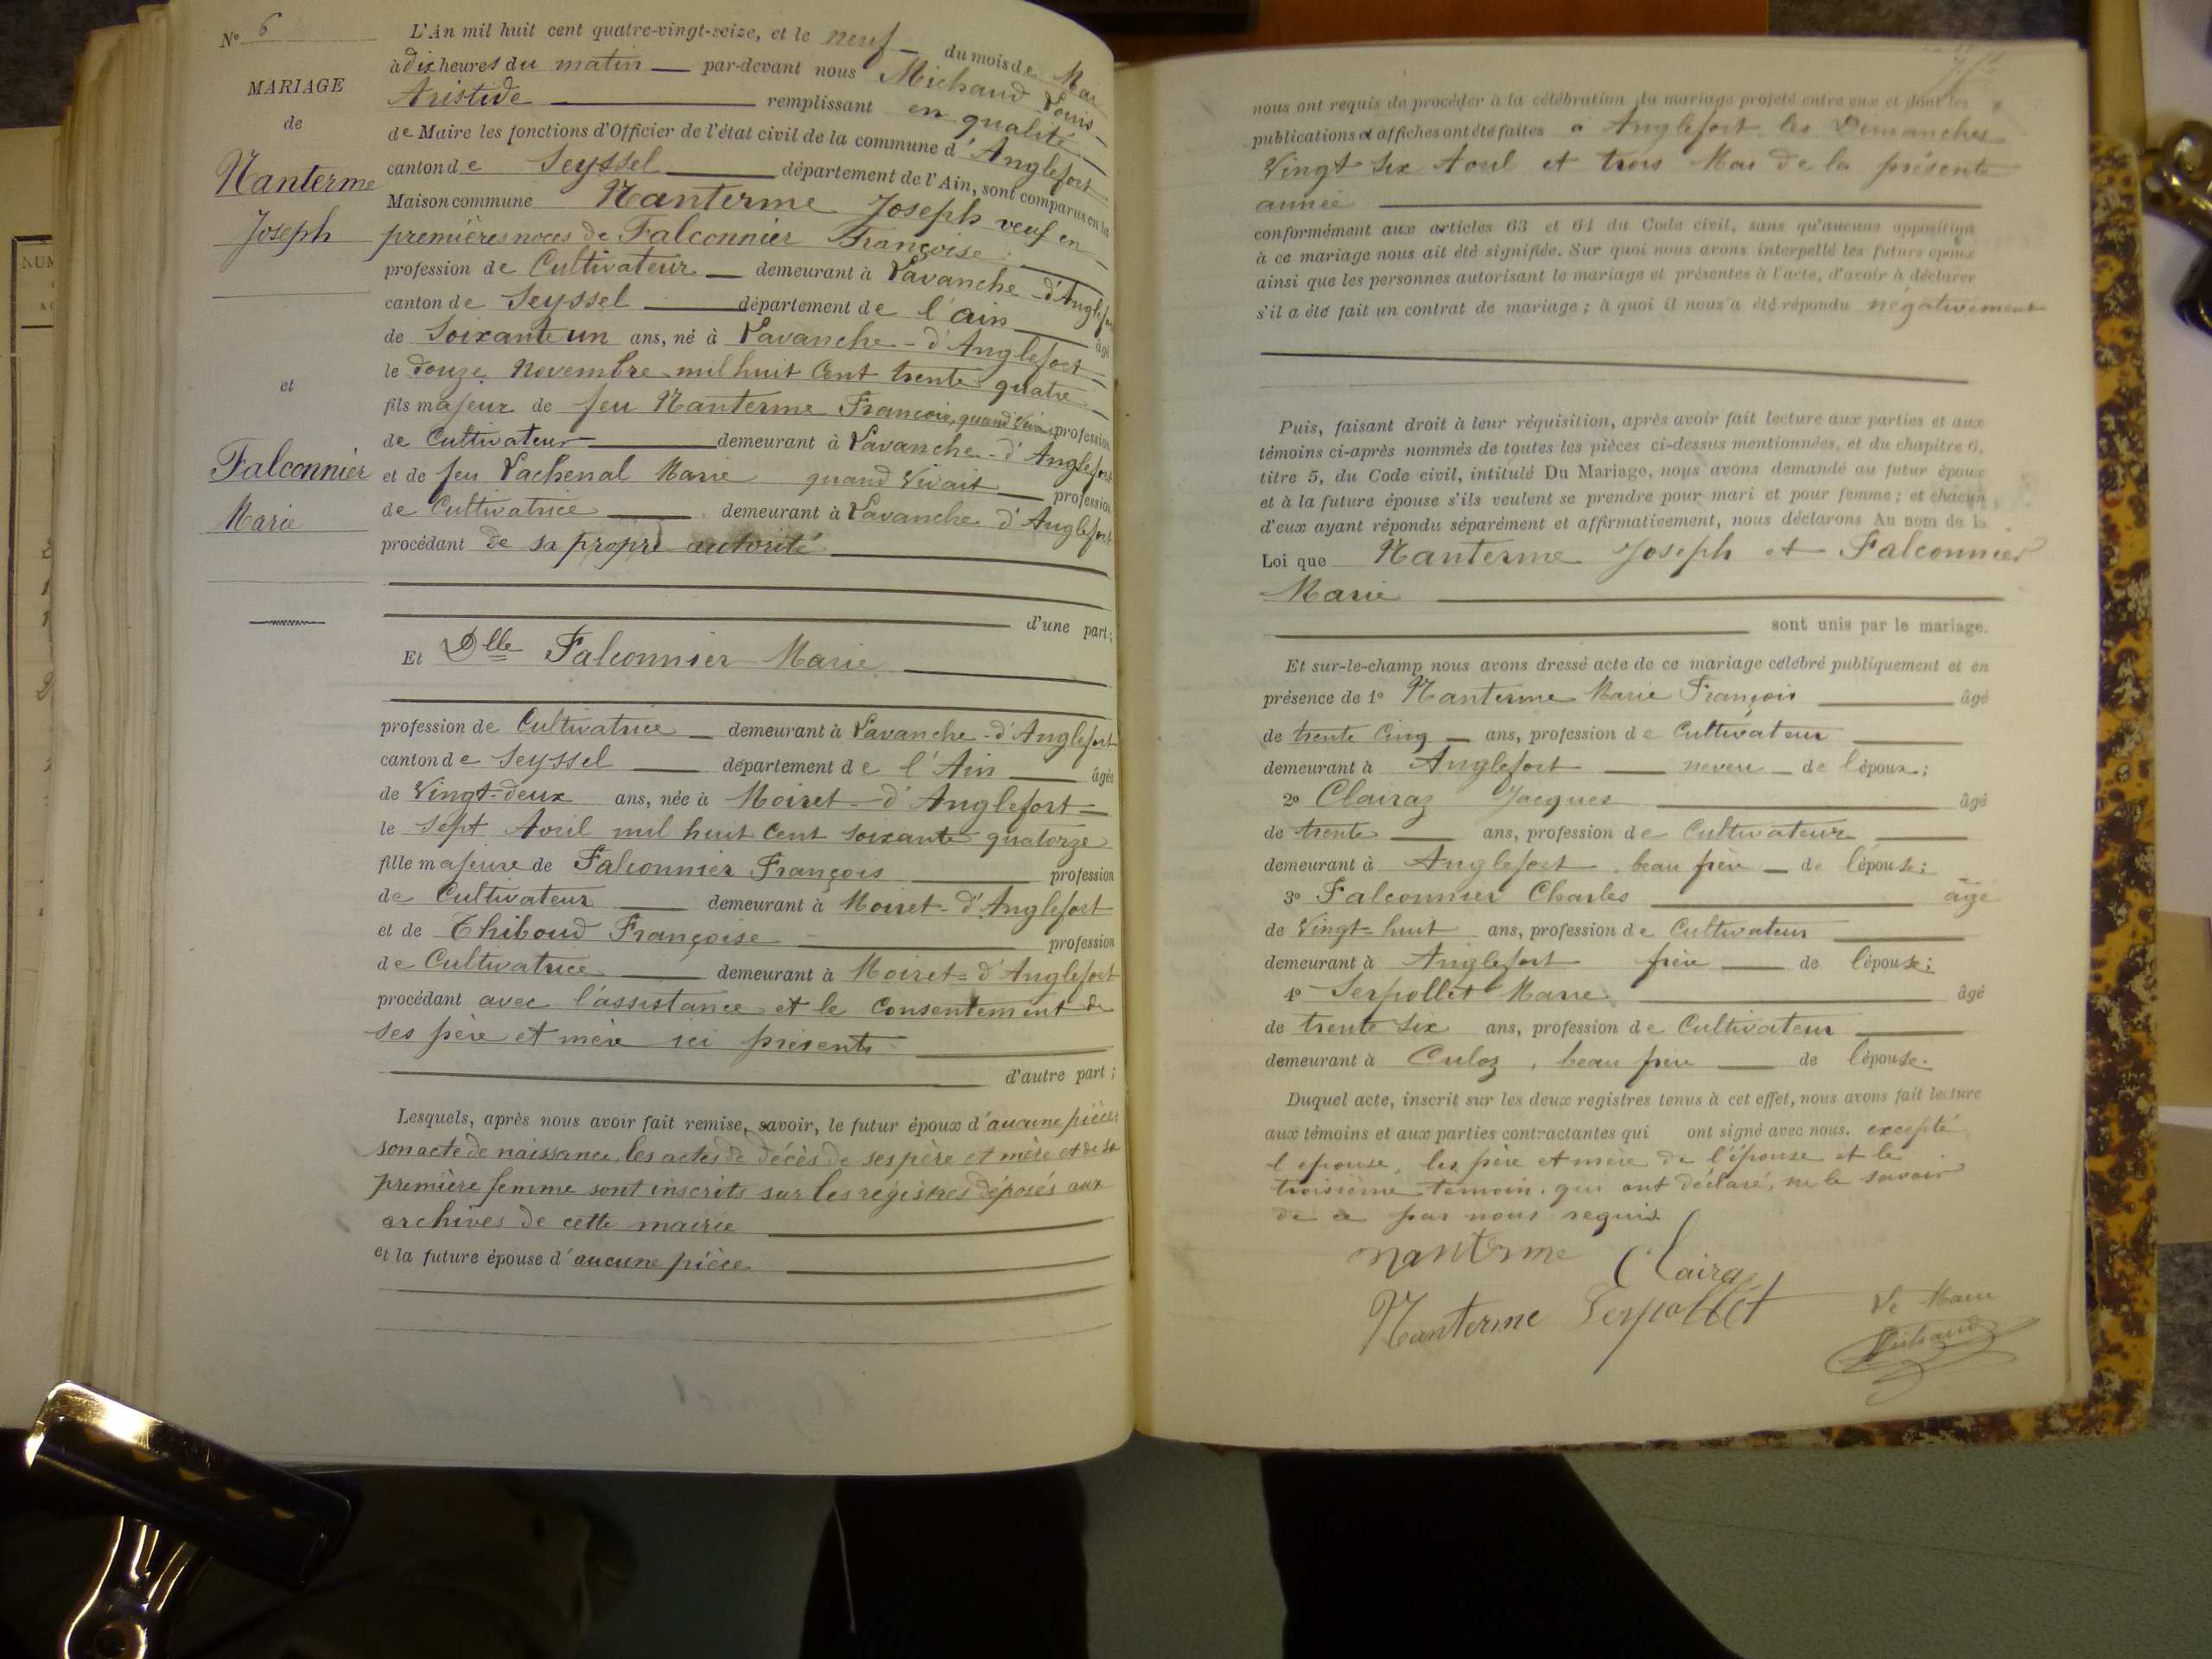 N° 6
MARIAGE
de
Nanterme
Joseph
et
Falconnier
Marie
L'An mil huit cent quatre-vingt-seize, et le neuf du mois de Mai
à dix heures du matin par-devant nous Michaud Louis
Aristide remplissant en qualité
de Maire les fonctions d'Officier de l'état civil de la commune d'Anglefort
canton de Seyssel département de l'Ain, sont comparus en la
Maison commune Nanterme Joseph veuf en
premières noces de Falconnier Françoise
profession de Cultivateur demeurant à Lavanche-d'Anglefort
canton de Seyssel département de l'ain âgé
de Soixante un ans, né à Lavanche-d'Anglefort
le douze Novembre mil huit Cent trente quatre
fils majeur de feu Nanterme François, quand Vivait profession
de Cultivateur demeurant à Lavanche-d'Anglefort
et de feu Lachenal Marie quand Vivait profession
de Cultivatrice demeurant à Lavanche d'Anglefort
procédant de sa propre autorité
d'une part;
Et Dlle Falconnier Marie
profession de Cultivatrice demeurant à Lavanche-d'Anglefort
canton de Seyssel département de l'Ain âgée
de Vingt-deux ans, née à Moiret-d'Anglefort
le Sept Avril mil huit Cent soixante quatorze
fille majeure de Falconnier François profession
de Cultivateur demeurant à Moiret-d'Anglefort
et de Thiboud Françoise profession
de Cultivatrice demeurant à Moiret-d'Anglefort
procédant avec l'assistance et le Consentement de
ses père et mère ici présents
d'autre part;
Lesquels, après nous avoir fait remise, savoir, le futur époux d'aucune pièce:
son acte de naissance, les actes de décès de ses père et mère et de sa
première femme sont inscrits sur les registres déposés aux
archives de cette mairie
et la future épouse d'aucune pièce
nous ont requis de procéder à la célébration du mariage projeté entre eux et dont les
publications et affiches ont été faites à Anglefort les Dimanches
Vingt six Avril et trois Mai de la présente
année
conformément aux articles 63 et 64 du Code civil, sans qu'aucune opposition
à ce mariage nous ait été signifiée. Sur quoi nous avons interpellé les futurs époux
ainsi que les personnes autorisant le mariage et présentes à l'acte, d'avoir à déclarer
s'il a été fait un contrat de mariage; à quoi il nous a été répondu négativement
Puis, faisant droit à leur réquisition, après avoir fait lecture aux parties et aux
témoins ci-après nommés de toutes les pièces ci-dessus mentionnées, et du chapitre 6,
titre 5, du Code civil, intitulé Du Mariage, nous avons demandé au futur époux
et à la future épouse s'ils veulent se prendre pour mari et pour femme; et chacun
d'eux ayant répondu séparément et affirmativement, nous déclarons Au nom de la
Loi que Nanterme Joseph et Falconnier
Marie
sont unis par le mariage.
Et sur-le-champ nous avons dressé acte de ce mariage célébré publiquement et en
présence de 1° Nanterme Marie François âgé
de trente Cinq ans, profession de Cultivateur
demeurant à Anglefort neveu de l'époux;
2° Clairaz Jacques âgé
de trente ans, profession de Cultivateur
demeurant à Anglefort, beau frère de l'épouse;
3° Falconnier Charles âgé
de Vingt-huit ans, profession de Cultivateur
demeurant à Anglefort frère de l'épouse;
4° Serpollet Marie âgé
de trente Six ans, profession de Cultivateur
demeurant à Culoz, beau frère de l'épouse.
Duquel acte, inscrit sur les deux registres tenus à cet effet, nous avons fait lecture
aux témoins et aux parties contractantes qui ont signé avec nous. excepté
l'épouse, les père et mère de l'épouse et le
troisième témoin, qui ont déclaré, ne le savoir
de ce par nous requis.
nanterme Clairaz
Nanterme Serpollet
Le Maire
Michaud